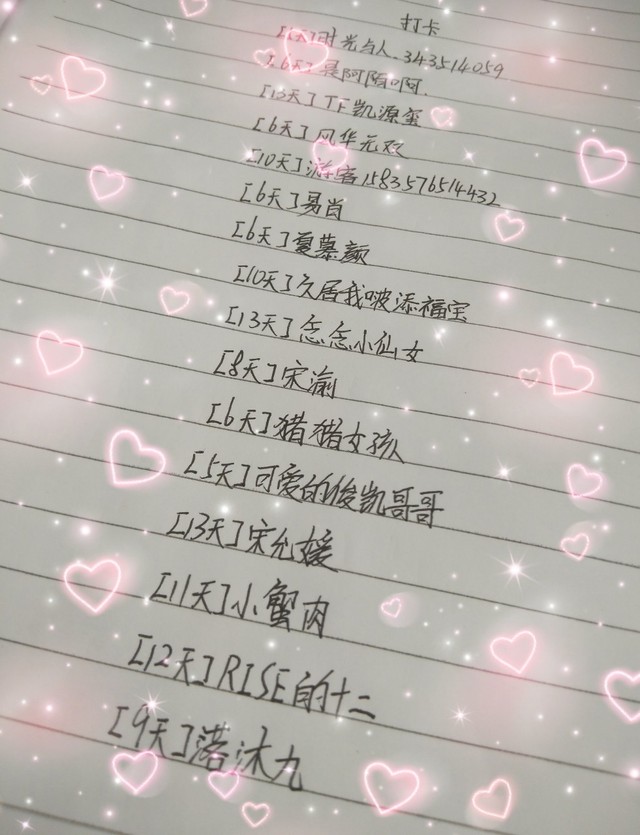 打卡
天]时光与人.343514059
[6天]是阿陌啊.
[13天]TF凯源玺
[6天]风华无双
[10天]游客1583576514432
[6天]易肖
[6天]夏慕颜
[10天]久居我啵添福宝
[13天]念念小仙女
[8天]宋渝
[6天]猪猪女孩
[5天]可爱的俊凯哥哥
[13天]宋允媛
[11天]小蟹肉
[12天]RISE的十二
[9天]落沐九